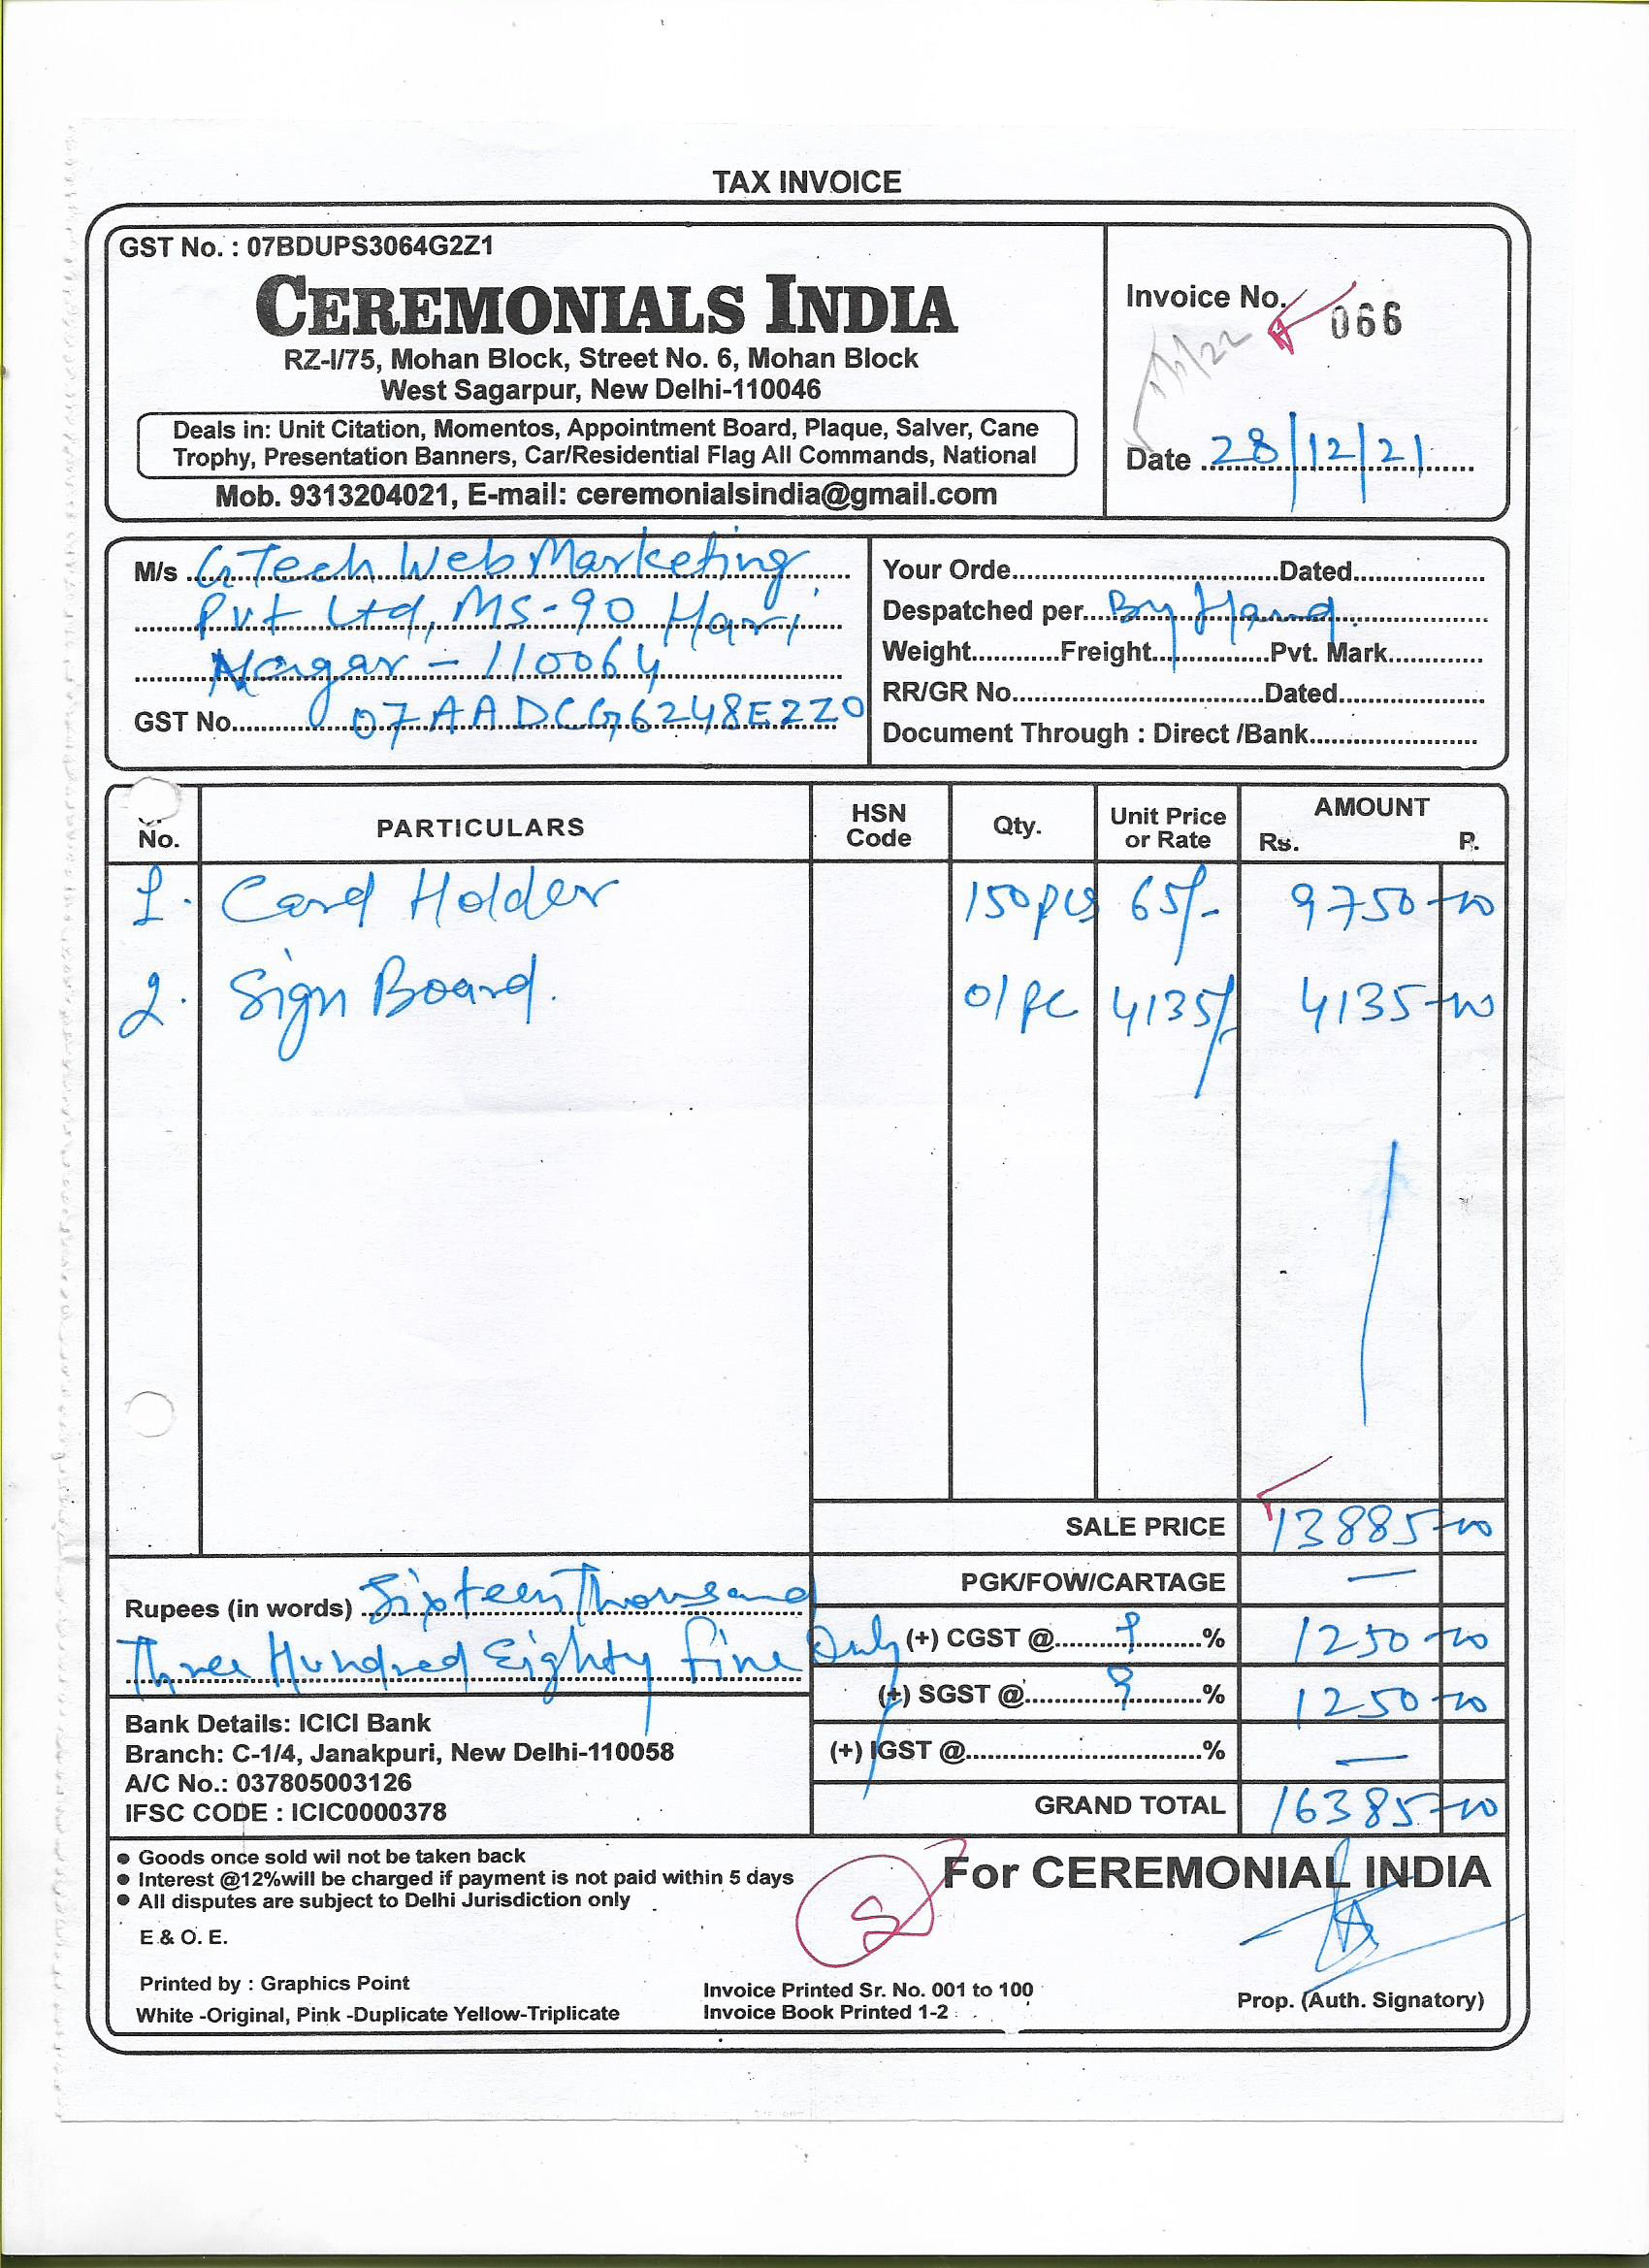 TAX INVOICE
GST No. : 07BDUPS3064G2Z1
CEREMONIALS INDIA
RZ-I/75, Mohan Block, Street No. 6, Mohan Block
West Sagarpur, New Delhi-110046
Deals in: Unit Citation, Momentos, Appointment Board, Plaque, Salver, Cane
Trophy, Presentation Banners, Car/Residential Flag All Commands, National
Mob. 9313204021, E-mail: ceremonialsindia@gmail.com
Invoice No. 066
Date 28/12/21
M/s GTech Web Marketing
Pvt Ltd, MS-90 Hari
Nagar - 110064
GST No. 07AADCG6248E2Z0
Your Orde Dated
Despatched per By Hand
Weight Freight Pvt. Mark
RR/GR No. Dated
Document Through : Direct /Bank
No. PARTICULARS HSN Code Qty. Unit Price or Rate AMOUNT Rs. P.
1. Card Holder 150 pcs 65/- 9750-00
2. Sign Board. 01 pc 4135/- 4135-00
SALE PRICE 13885-00
PGK/FOW/CARTAGE —
Rupees (in words) Sixteen Thousand
Three Hundred Eighty Five Only
(+) CGST @ 9 % 1250-00
(+) SGST @ 9 % 1250-00
(+) IGST @ % —
GRAND TOTAL 16385-00
Bank Details: ICICI Bank
Branch: C-1/4, Janakpuri, New Delhi-110058
A/C No.: 037805003126
IFSC CODE : ICIC0000378
• Goods once sold wil not be taken back
• Interest @12%will be charged if payment is not paid within 5 days
• All disputes are subject to Delhi Jurisdiction only
E & O. E.
For CEREMONIAL INDIA
Printed by : Graphics Point
White -Original, Pink -Duplicate Yellow-Triplicate
Invoice Printed Sr. No. 001 to 100
Invoice Book Printed 1-2
Prop. (Auth. Signatory)